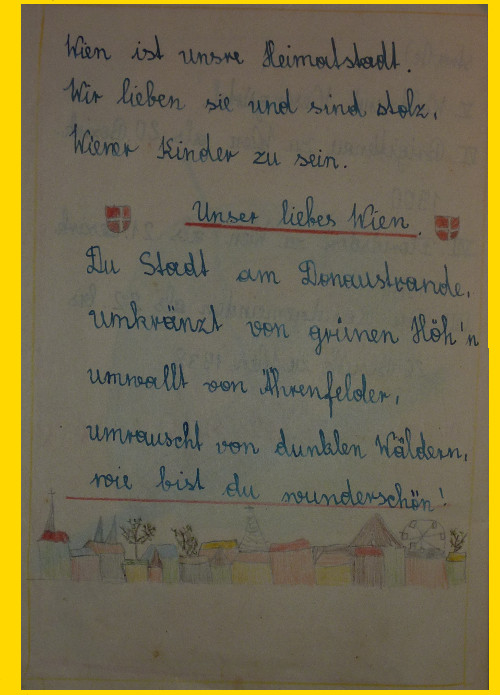 Wien ist unsre Heimatstadt.
Wir lieben sie und sind stolz,
Wiener Kinder zu sein.
Unser liebes Wien.
Du Stadt am Donaustrande,
umkränzt von grünen Höh'n
umwallt von Ährenfelder,
umrauscht von dunklen Wäldern,
wie bist du wunderschön!